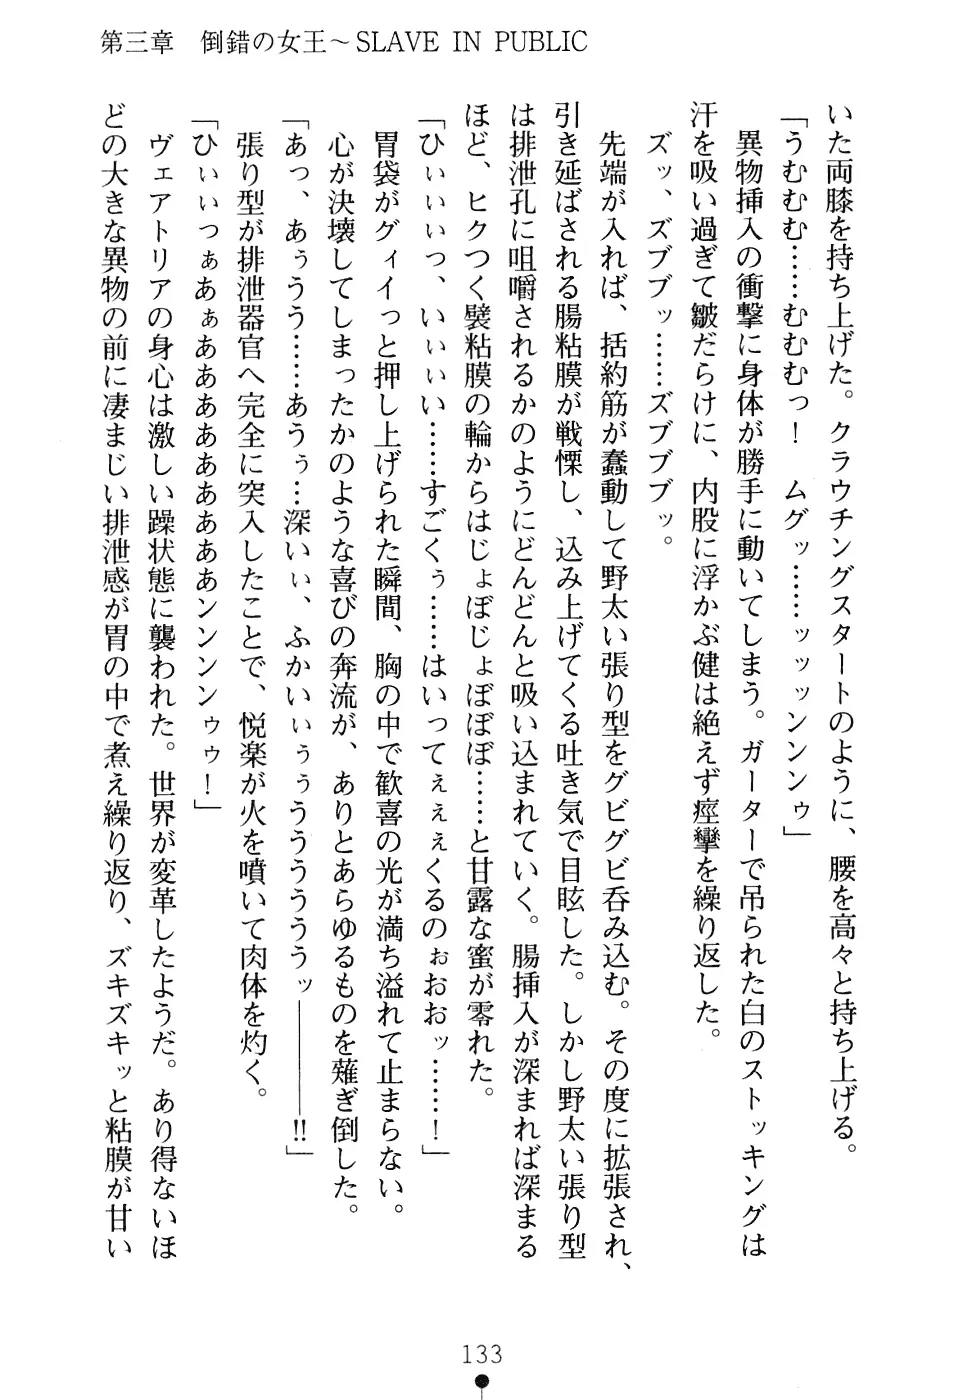 第三章　倒錯の女王～SLAVE IN PUBLIC
いた両膝を持ち上げた。クラウチングスタートのように、腰を高々と持ち上げる。
「うむむむ……むむむっ！　ムグッ……ッッッンンンゥ」
異物挿入の衝撃に身体が勝手に動いてしまう。ガーターで吊られた白のストッキングは
汗を吸い過ぎて皺だらけに、内股に浮かぶ健は絶えず痙攣を繰り返した。
ズッ、ズブブッ……ズブブブッ。
先端が入れば、括約筋が蠢動して野太い張り型をグビグビ呑み込む。その度に拡張され、
引き延ばされる腸粘膜が戦慄し、込み上げてくる吐き気で目眩した。しかし野太い張り型
は排泄孔に咀嚼されるかのようにどんどんと吸い込まれていく。腸挿入が深まれば深まる
ほど、ヒクつく襞粘膜の輪からはじょぼじょぼぼぼ……と甘露な蜜が零れた。
「ひぃぃぃっ、いぃぃい……すごくぅ……はいってぇぇぇくるのぉおおッ……！」
胃袋がグィイっと押し上げられた瞬間、胸の中で歓喜の光が満ち溢れて止まらない。
心が決壊してしまったかのような喜びの奔流が、ありとあらゆるものを薙ぎ倒した。
「あっ、あぅうう……あうぅ…深いぃ、ふかいぃぅぅうううううッ―――!!」
張り型が排泄器官へ完全に突入したことで、悦楽が火を噴いて肉体を灼く。
「ひぃぃっぁあぁああああああああンンンンゥゥ！」
ヴェアトリアの身心は激しい躁状態に襲われた。世界が変革したようだ。あり得ないほ
どの大きな異物の前に凄まじい排泄感が胃の中で煮え繰り返り、ズキズキッと粘膜が甘い
133